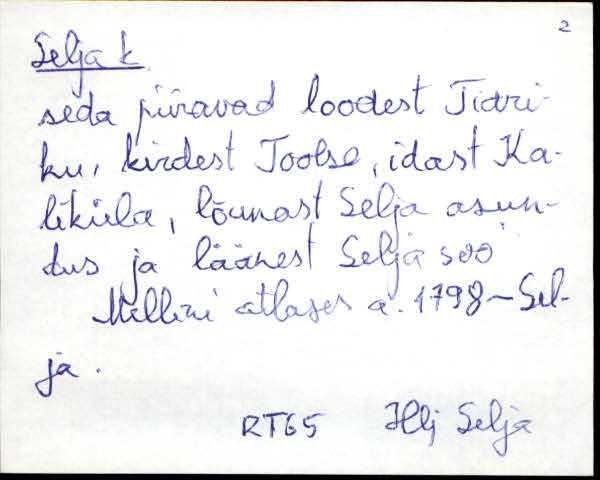 2
Selja k.
seda piiravad loodest Tidri-
ku, kirdest Toolse, idast Ka-
liküla, lõunast Selja asun-
dus ja läänest Selja soo
Mellini atlases a. 1798 – Sel-
ja.
RT65 Hlj Selja